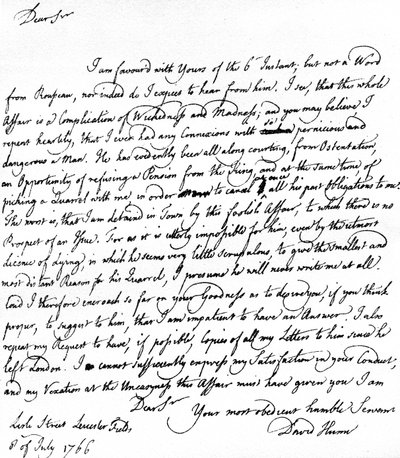 Dear Sir
I am favour'd with Yours of the 6th Instant; but not a Word
from Rousseau, nor indeed do I expect to hear from him. I see, that this whole
Affair is a Complication of Wickedness and Madness; and you may believe I
repent heartily, that I ever had any Connexions with so pernicious and
dangerous a Man. He has evidently been all along courting, from Ostentation,
an Opportunity of refusing a Pension from the King, and at the same time of
picking a Quarrel with me, in order to cancel all his past Obligations to me.
The worst is, that I am detained in Town by this foolish Affair, to which there is no
Prospect of an Issue. For as it is utterly impossible for him, even by the utmost
Licence of lying, in which he seems very little scrupulous, to give the smallest and
most distant Reason for his Quarrel, I presume he will never write me at all.
Coud I therefore encroach so far on your Goodness as to desire you, if you think
proper, to suggest to him, that I am impatient to have an Answer. I also
repeat my Request to have, if possible, Copies of all my Letters to him since he
left London. I cannot sufficiently express my Satisfaction in your Conduct,
and my Vexation at the Uneasyness this Affair must have given you. I am
Dear Sir
Your most obedient humble Servant
David Hume
Lisle Street Leicester Fields
8 of July 1766